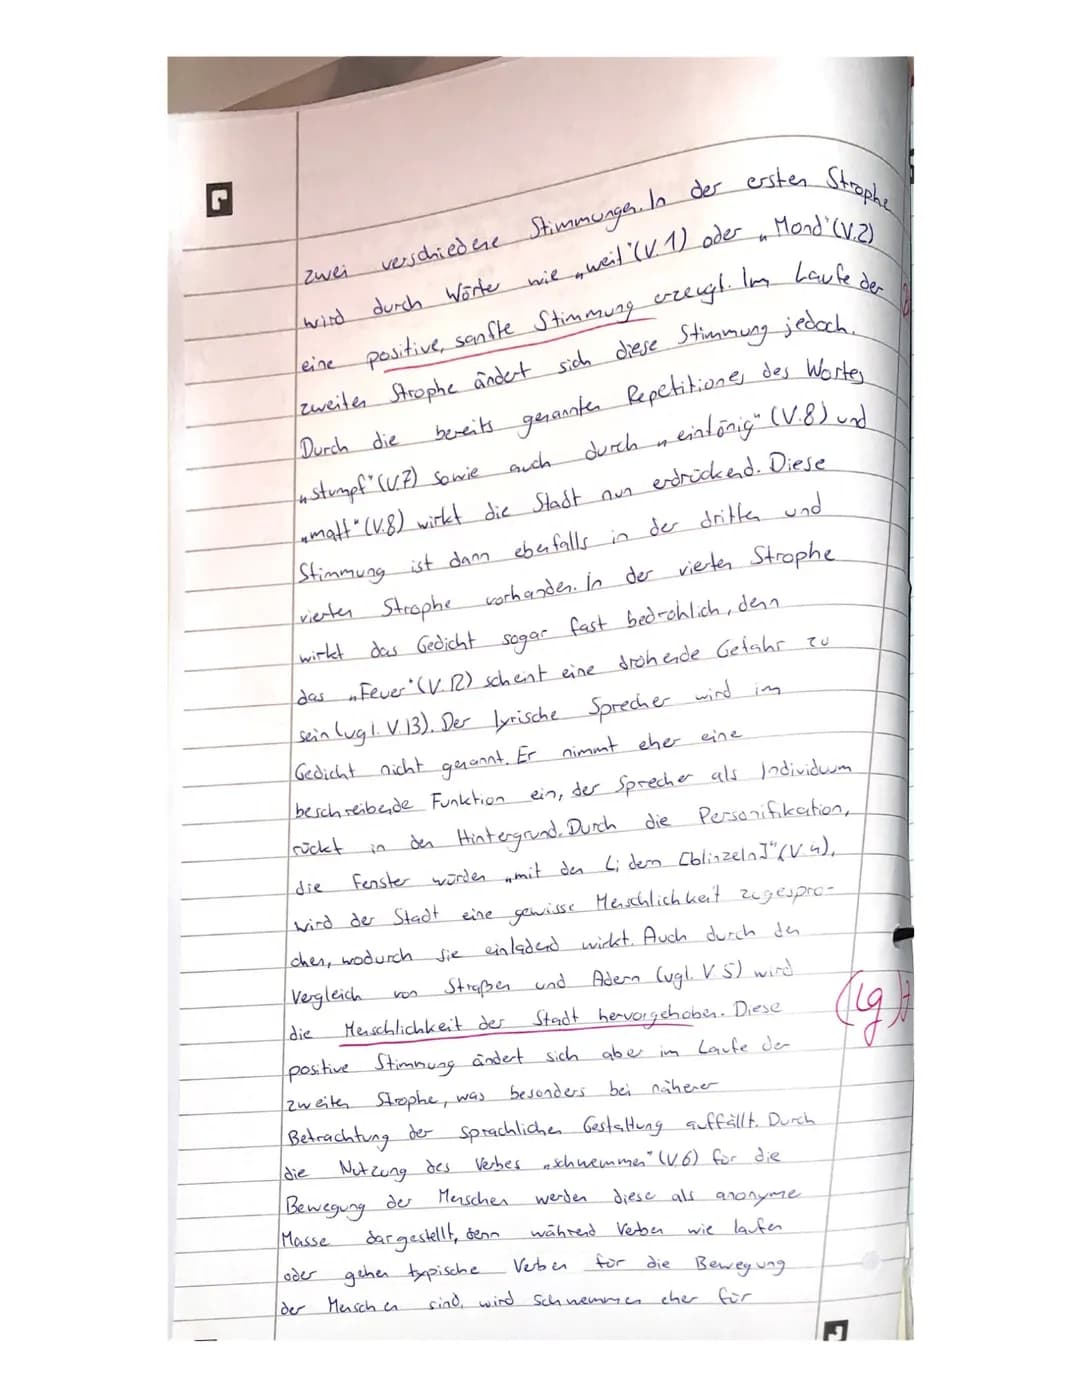 zwei verschiedene Stimmungen. In der ersten Strophe
wird durch Wörter wie „weit"(V.1) oder „Mond"(V.2)
eine positive, sanfte Stimmung erzeugt. Im Laufe der
zweiten Strophe ändert sich diese Stimmung jedoch.
Durch die bereits genannten Repetitionen des Wortes
„stumpf"(V.7) sowie auch durch „eintönig" (V.8) und
„matt" (V.8) wirkt die Stadt nun erdrückend. Diese
Stimmung ist dann ebenfalls in der dritten und
vierten Strophe vorhanden. In der vierten Strophe
wirkt das Gedicht sogar fast bedrohlich, denn
das „Feuer"(V.12) scheint eine drohende Gefahr zu
sein (vgl. V.13). Der lyrische Sprecher wird im
Gedicht nicht genannt. Er nimmt eher eine
beschreibende Funktion ein, der Sprecher als Individuum
rückt in den Hintergrund. Durch die Personifikation,
die Fenster würden „mit den Lidern [blinzeln]"(V.4),
wird der Stadt eine gewisse Menschlichkeit zugespro-
chen, wodurch sie einladend wirkt. Auch durch den
Vergleich von Straßen und Adern (vgl. V 5) wird
die Menschlichkeit der Stadt hervorgehoben. Diese
(lg)
positive Stimmung ändert sich aber im Laufe der
zweiten Strophe, was besonders bei näherer
Betrachtung der sprachlichen Gestaltung auffällt. Durch
die Nutzung des Verbes „schwemmen" (V.6) für die
Bewegung der Menschen werden diese als anonyme
Masse dargestellt, denn während Verben wie laufen
oder gehen typische Verben für die Bewegung
der Menschen sind, wird schwemmen eher für